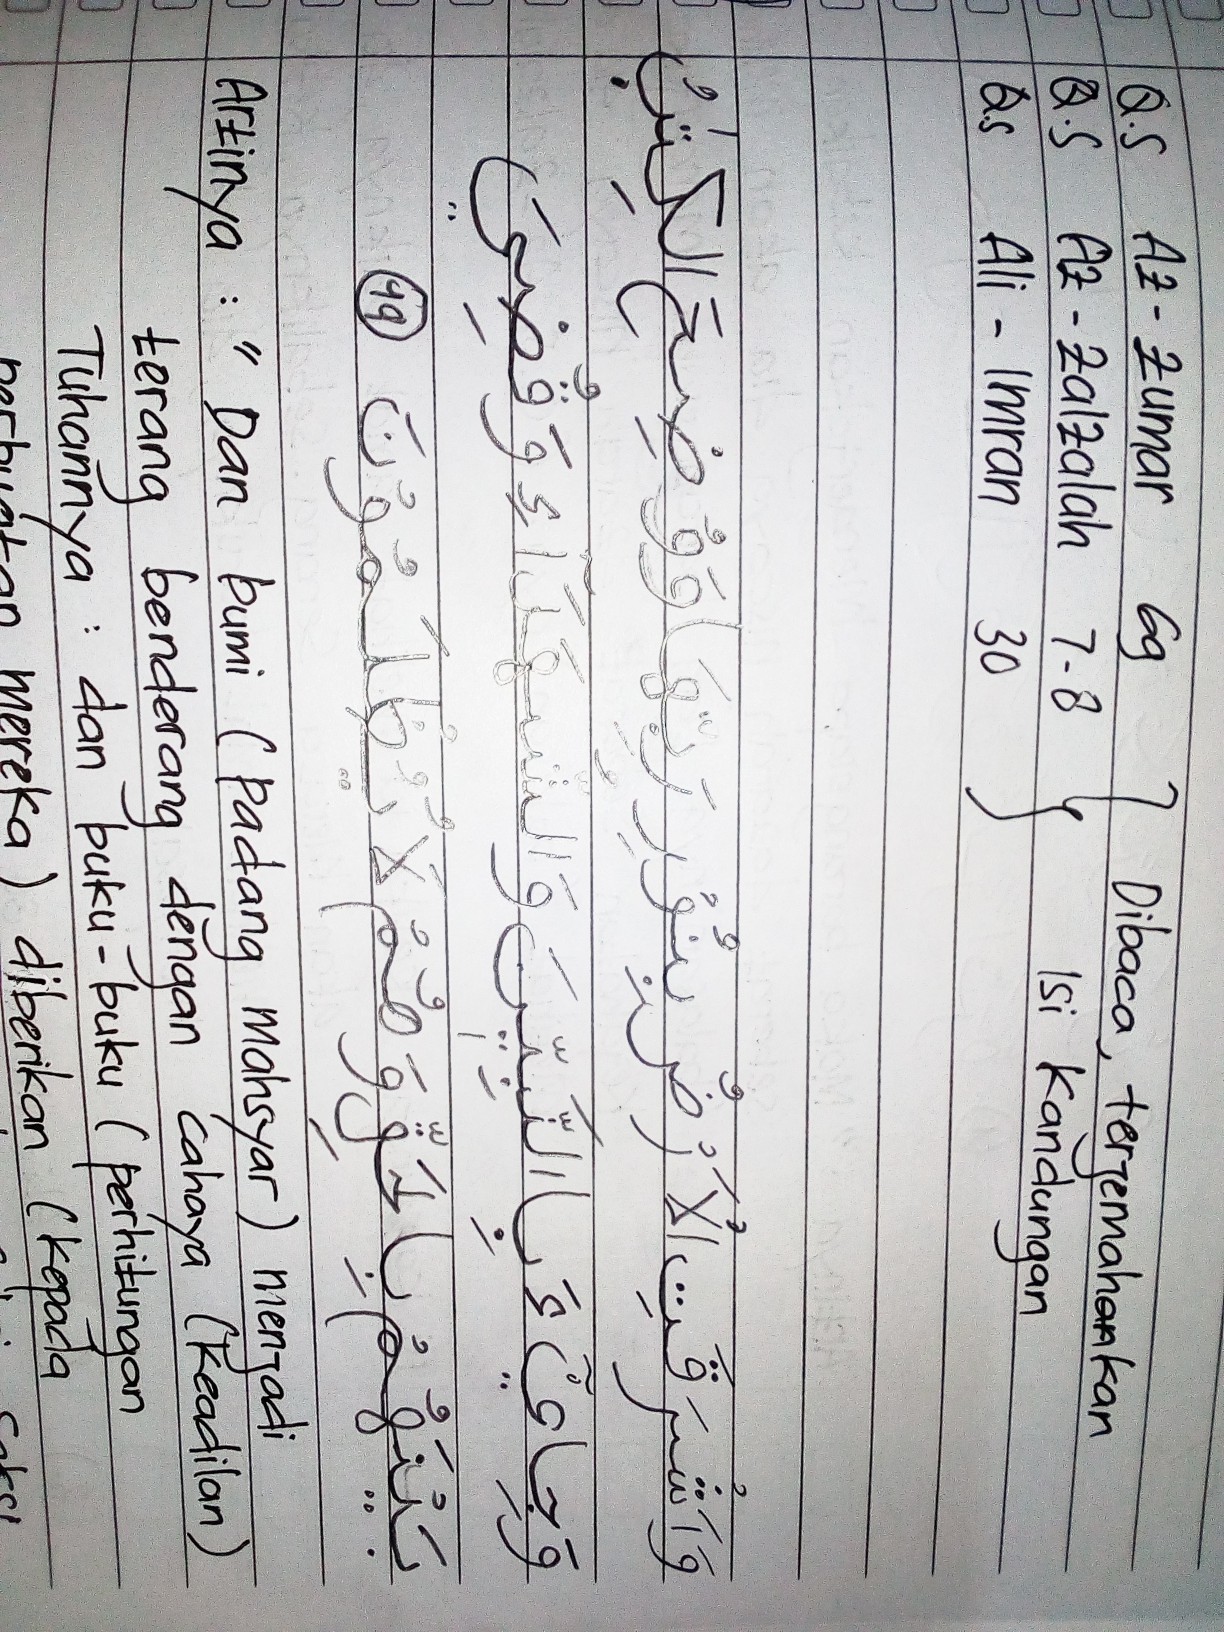 Q.S Az-Zumar 69 } Dibaca, terjemahankan
Q.S Az-Zalzalah 7-8 Isi Kandungan
Qs Ali-Imran 30
وَاَشْرَقَتِ الْاَرْضُ بِنُوْرِ رَبِّهَا وَوُضِعَ الْكِتٰبُ
وَجِايْۤءَ بِالنَّبِيّٖنَ وَالشُّهَدَاۤءِ وَقُضِيَ
بَيْنَهُمْ بِالْحَقِّ وَهُمْ لَا يُظْلَمُوْنَ (49)
Artinya : " Dan bumi (Padang Mahsyar) menjadi
terang benderang dengan cahaya (keadilan)
Tuhannya : dan buku-buku (perhitungan
perbuatan mereka) diberikan (kepada